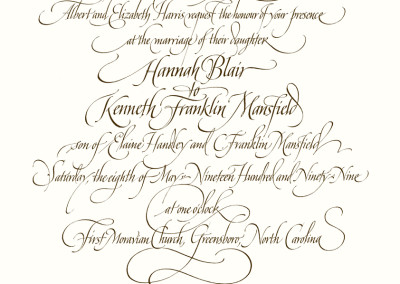 Albert and Elizabeth Harris request the honour of your presence
at the marriage of their daughter
Hannah Blair
to
Kenneth Franklin Mansfield
son of Elaine Handley and C Franklin Mansfield
Saturday, the eighth of May Nineteen Hundred and Ninety Nine
at one o'clock
First Moravian Church, Greensboro, North Carolina